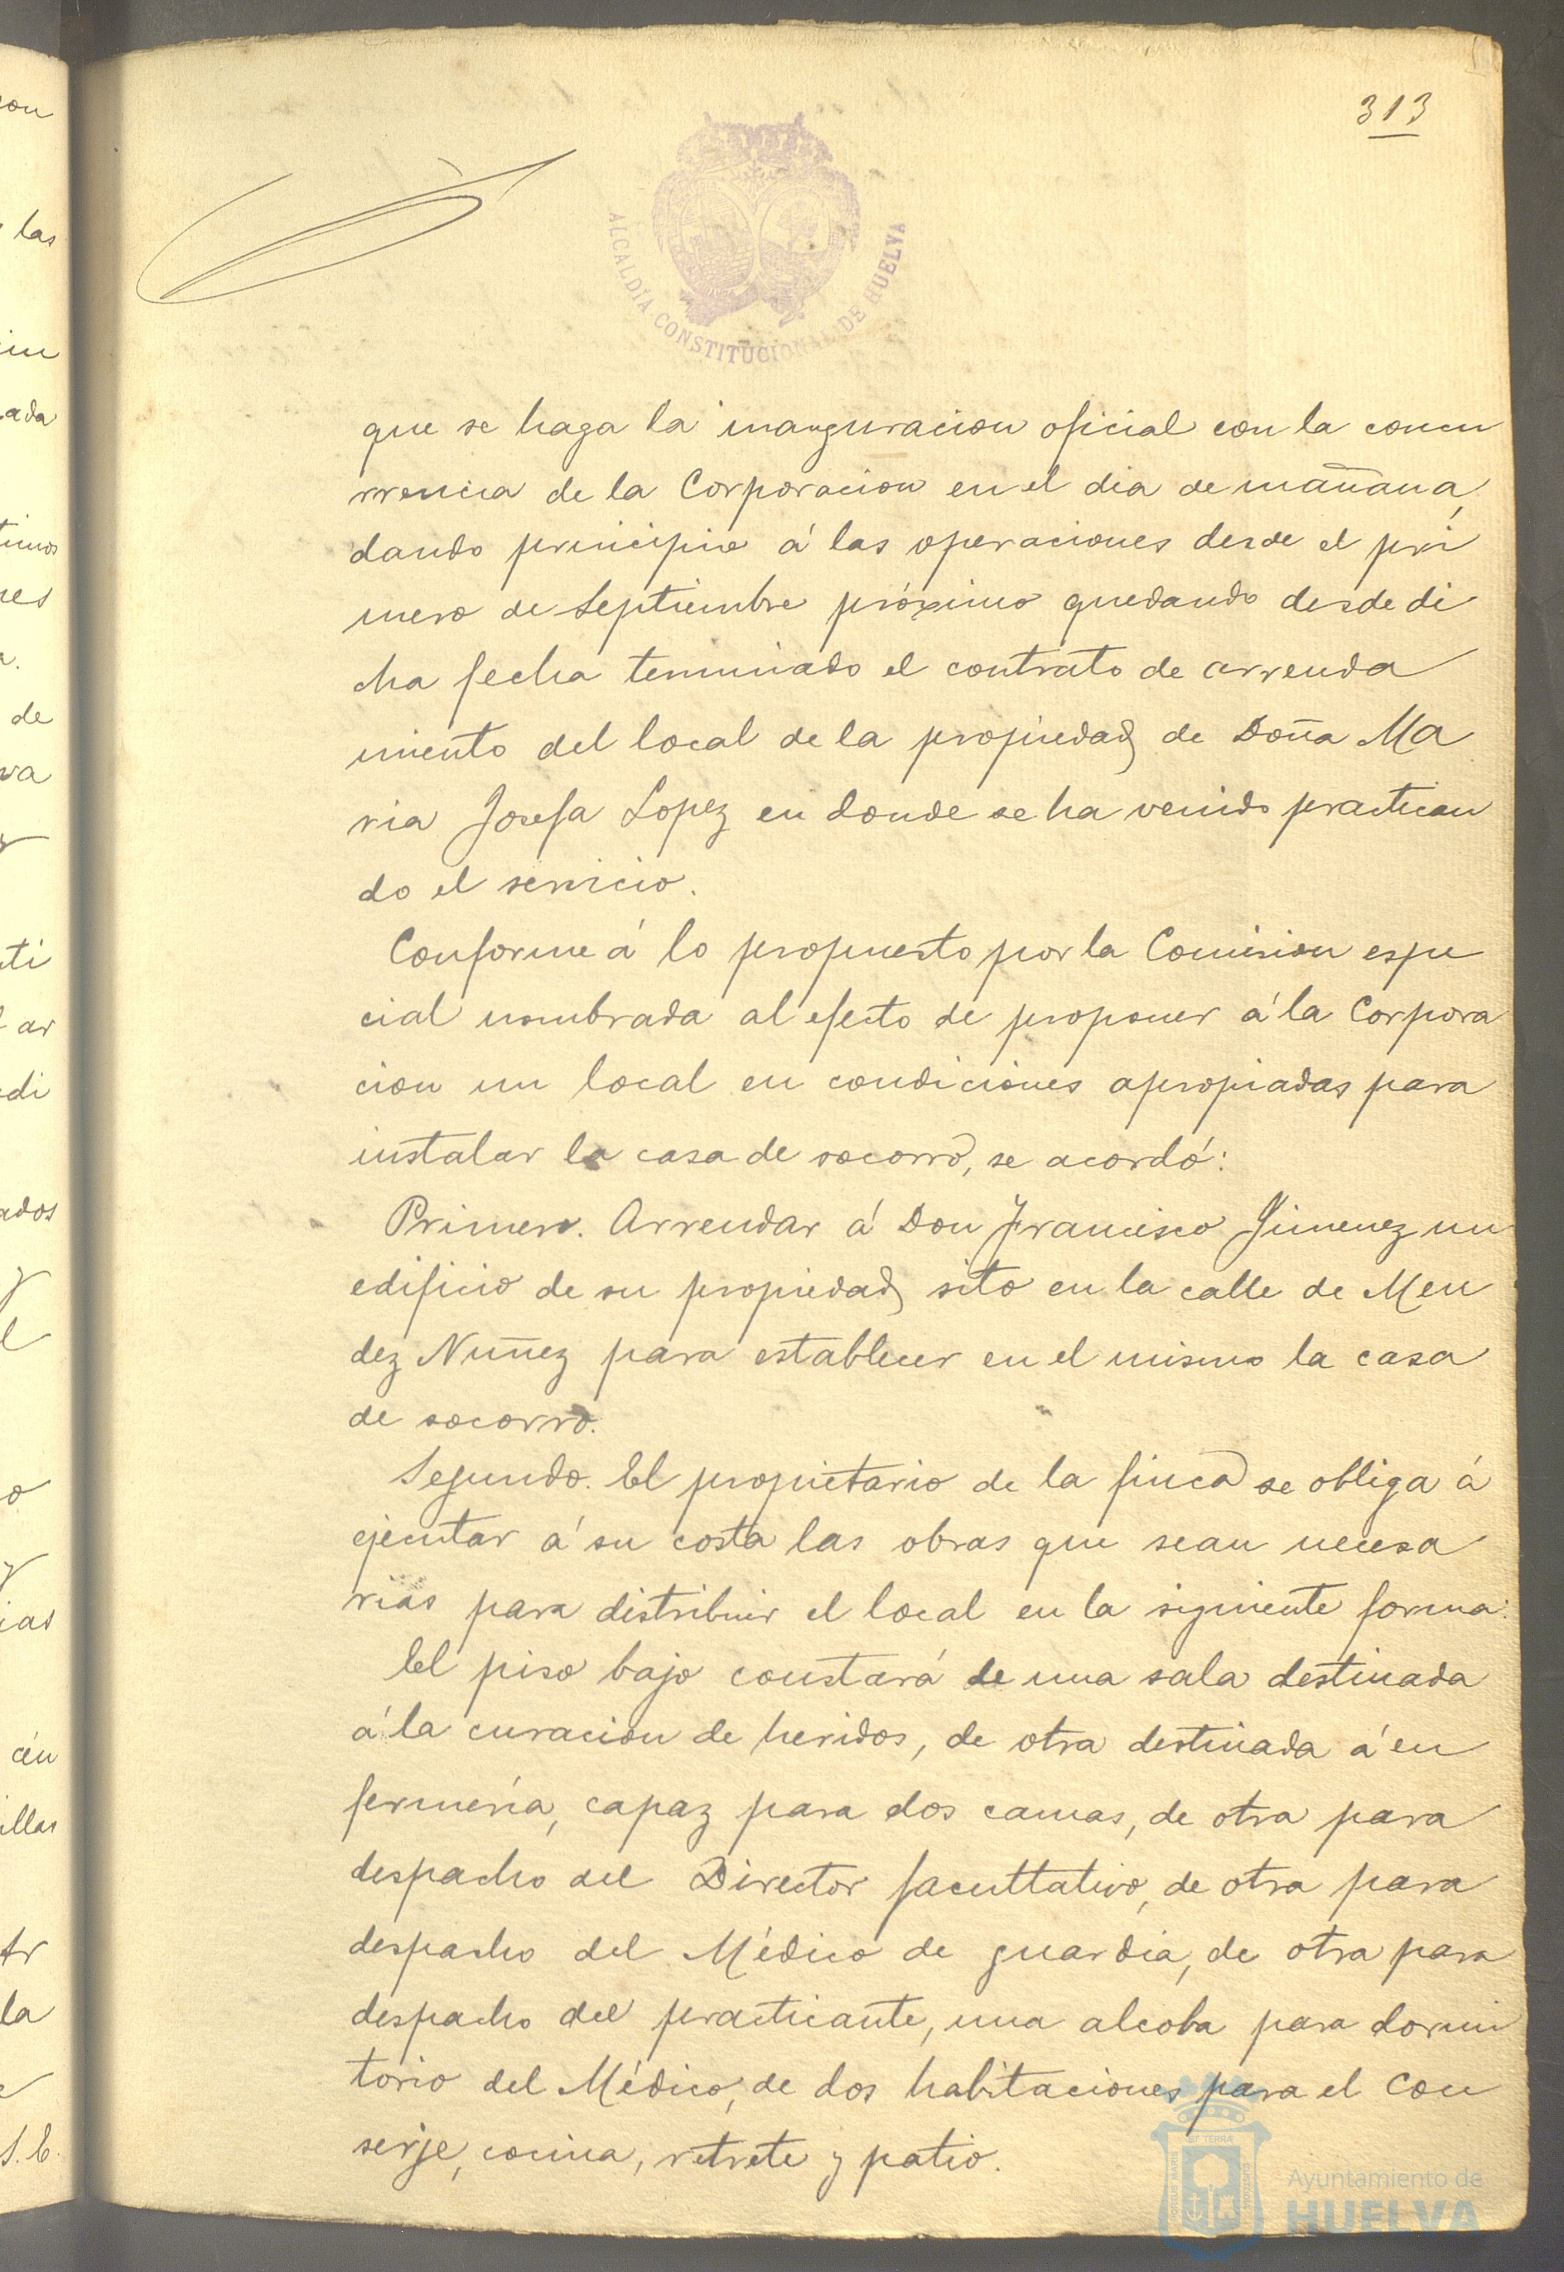 313
ALCALDÍA CONSTITUCIONAL DE HUELVA
que se haga la inauguracion oficial con la concu
rrencia de la Corporacion en el dia de mañana,
dando principio á las operaciones desde el pri
mero de Septiembre próximo quedando desde di
cha fecha terminado el contrato de arrenda
miento del local de la propiedad de Doña Ma
ria Josefa Lopez en donde se ha venido practican
do el servicio.
Conforme á lo propuesto por la Comision espe
cial nombrada al efecto de proponer á la Corpora
cion un local en condiciones apropiadas para
instalar la casa de socorro, se acordó:
Primero. Arrendar á Don Francisco Jimenez un
edificio de su propiedad sito en la calle de Men
dez Nuñez para establecer en el mismo la casa
de socorro.
Segundo. El propietario de la finca se obliga á
ejecutar á su costa las obras que sean necesa
rias para distribuir el local en la siguiente forma:
El piso bajo constará de una sala destinada
á la curacion de heridos, de otra destinada á en
fermería, capaz para dos camas, de otra para
despacho del Director facultativo, de otra para
despacho del Médico de guardia, de otra para
despacho del practicante, una alcoba para dormi
torio del Médico, de dos habitaciones para el con
serje, cocina, retrete y patio.
Ayuntamiento de
HUELVA